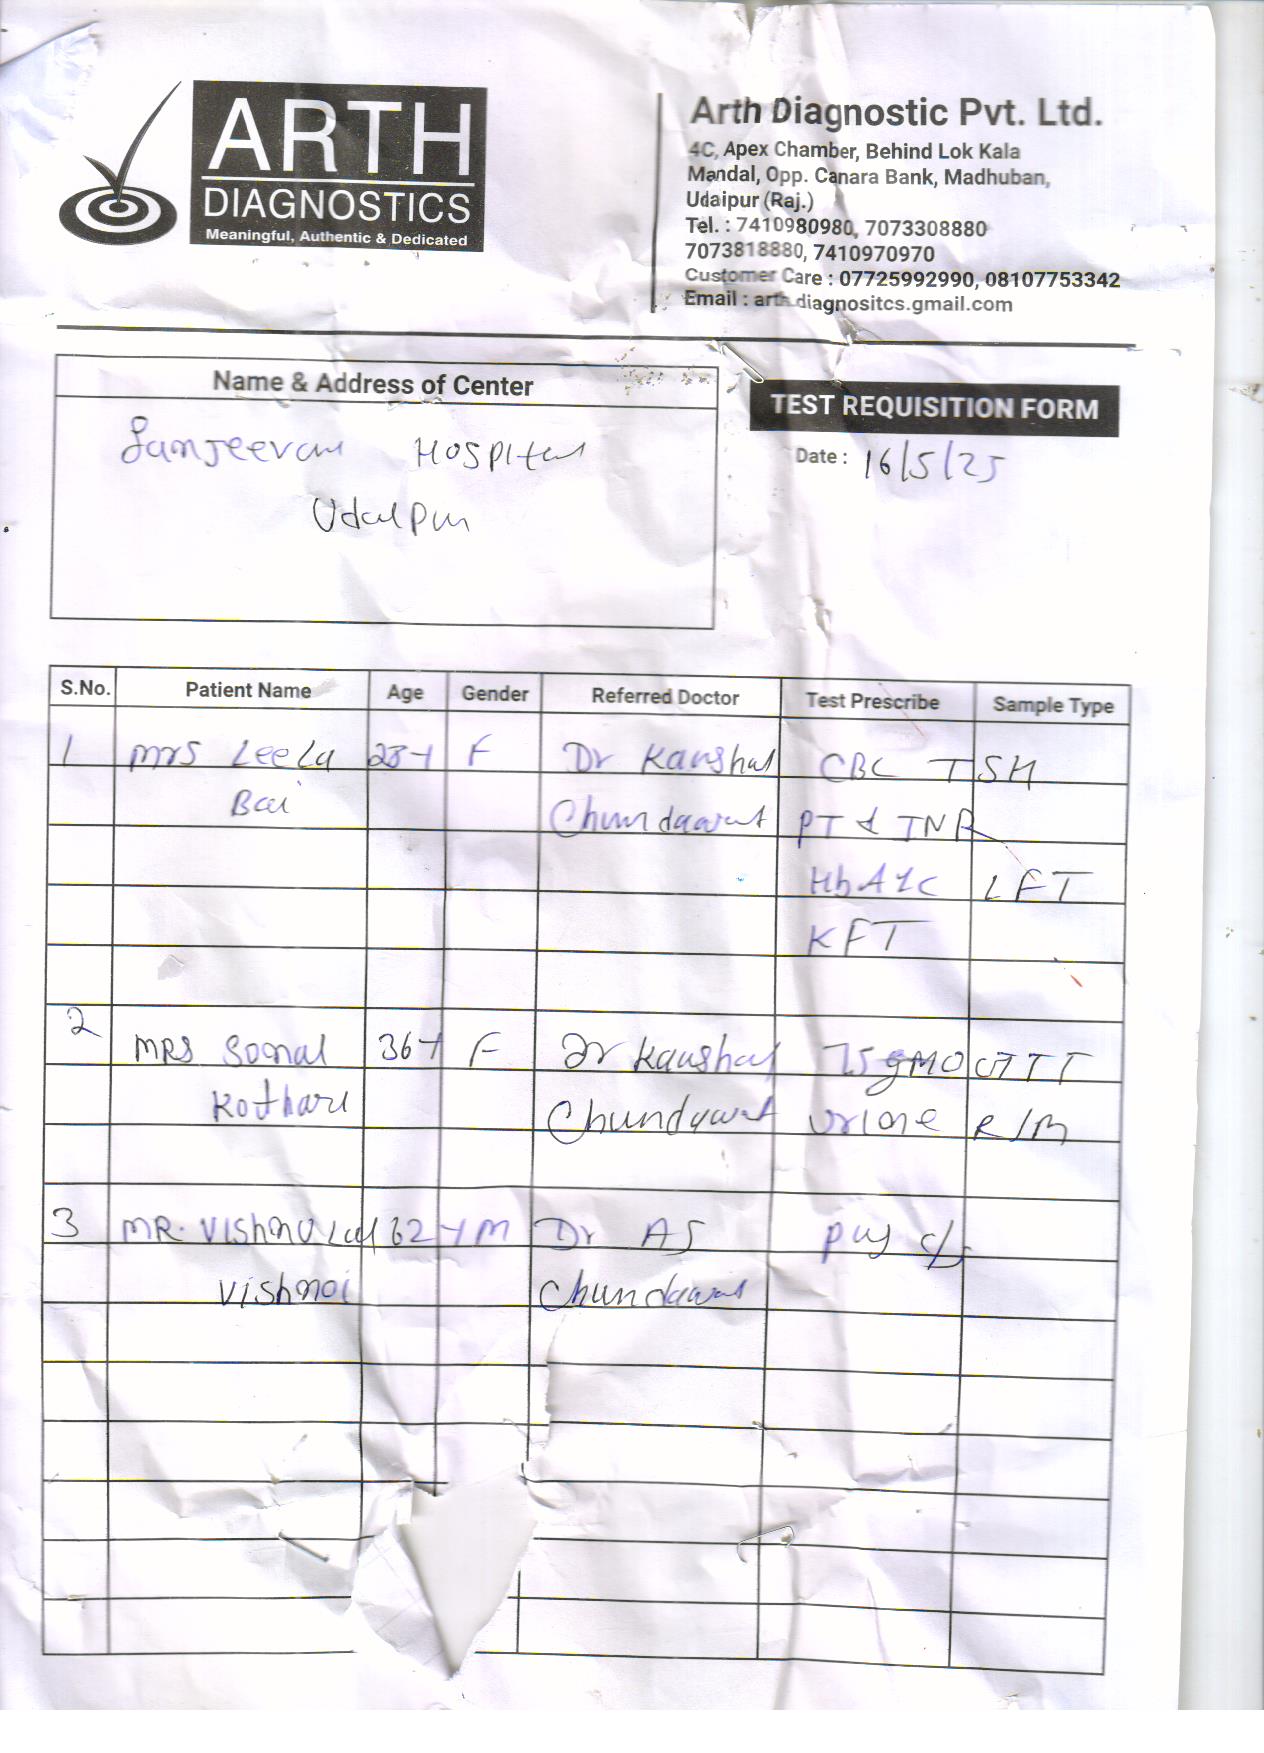 ARTH
DIAGNOSTICS
Meaningful, Authentic & Dedicated
Arth Diagnostic Pvt. Ltd.
4C, Apex Chamber, Behind Lok Kala
Mandal, Opp. Canara Bank, Madhuban,
Udaipur (Raj.)
Tel. : 7410980980, 7073308880
7073818880, 7410970970
Customer Care : 07725992990, 08107753342
Email : arth.diagnositcs.gmail.com
Name & Address of Center
Sanjeevan Hospital
Udaipur
TEST REQUISITION FORM
Date : 16/5/25
S.No. Patient Name Age Gender Referred Doctor Test Prescribe Sample Type
1 Mrs Leela F Dr Kaushal CBC TSH
Bai Chundawat PT & INR
HbA1C LFT
KFT
2 MRS Sonal 36Y F Dr Kaushal 75 gm OGTT
Kothari Chundawat Urine R/M
3 MR. Vishnu Lal 62 Y M Dr AS Pus C/S
Vishnoi Chundawat